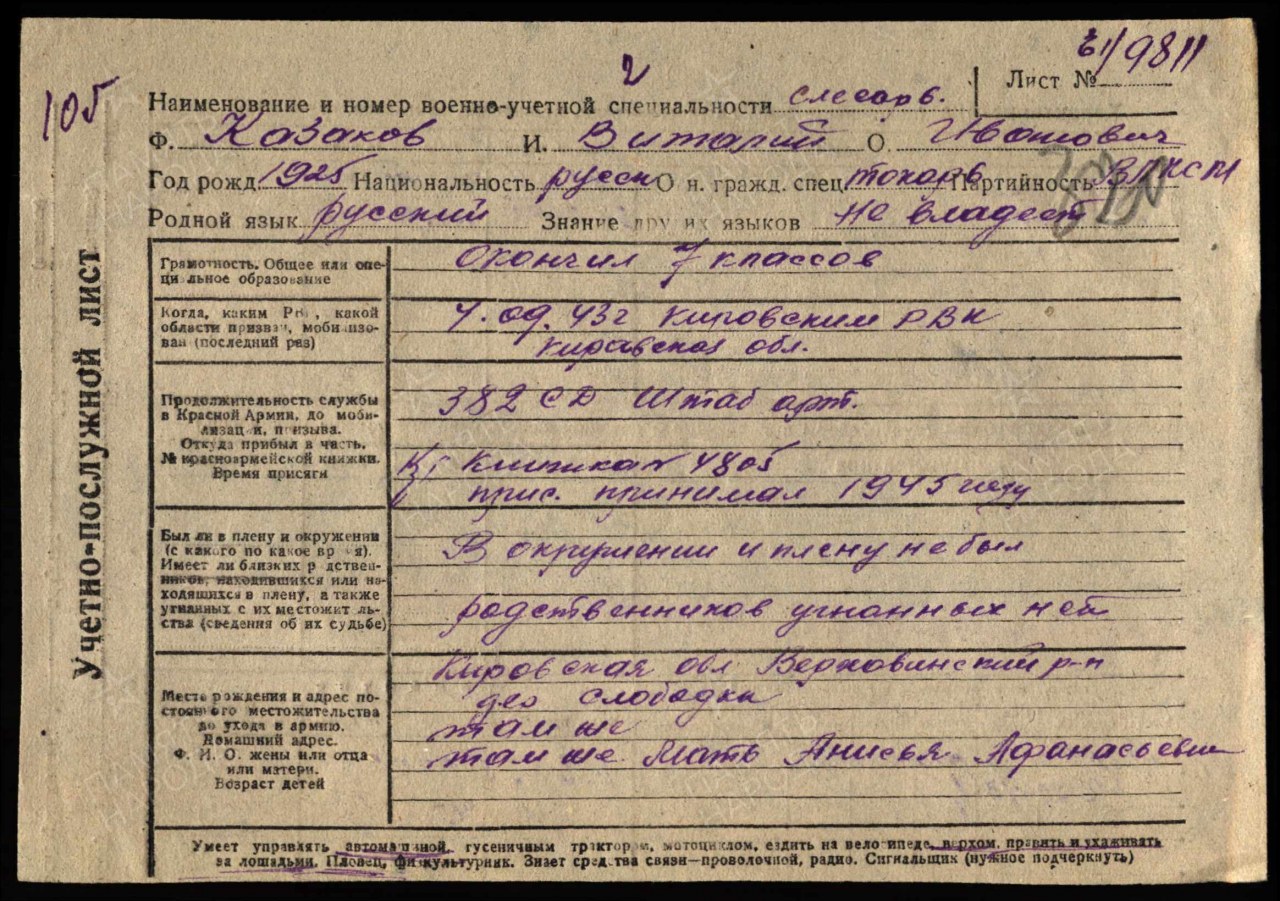 61/9811
2
Лист №
105
Наименование и номер военно-учетной специальности слесарь.
Ф. Казаков И. Виталий О. Иванович
Год рожд. 1925 Национальность русск Осн. гражд. спец токарь Партийность ВЛКСМ
Родной язык русский Знание других языков не владеет
Учетно-послужной лист
Грамотность. Общее или специальное образование
окончил 7 классов
Когда, каким РВК, какой
области призван, мобилизо-
ван (последний раз)
43г Кировским РВК
Кировская обл.
Продолжительность службы
в Красной Армии, до моби-
лизации, призыва.
Откуда прибыл в часть.
№ красноармейской книжки.
Время присяги
382 СД Штаб арт.
Кр Книжка № 4805
прис. принимал 1945 году
Был ли в плену и окружении
(с какого по какое время).
Имеет ли близких родствен-
ников, находившихся или на-
ходящихся в плену, а также
угнанных с их местожитель-
ства (сведения об их судьбе)
В окружении и плену не был
родственников угнанных нет
Место рождения и адрес по-
стоянного местожительства
до ухода в армию.
Домашний адрес.
Ф. И. О. жены или отца
или матери.
Возраст детей
Кировская обл Верховинский р-н
дер слободка
там же
там же Мать Анисья Афанасьевна
Умеет управлять автомашиной, гусеничным трактором, мотоциклом, ездить на велосипеде, верхом, править и ухаживать
за лошадьми. Пловец, физкультурник. Знает средства связи—проволочной, радио. Сигнальщик (нужное подчеркнуть)